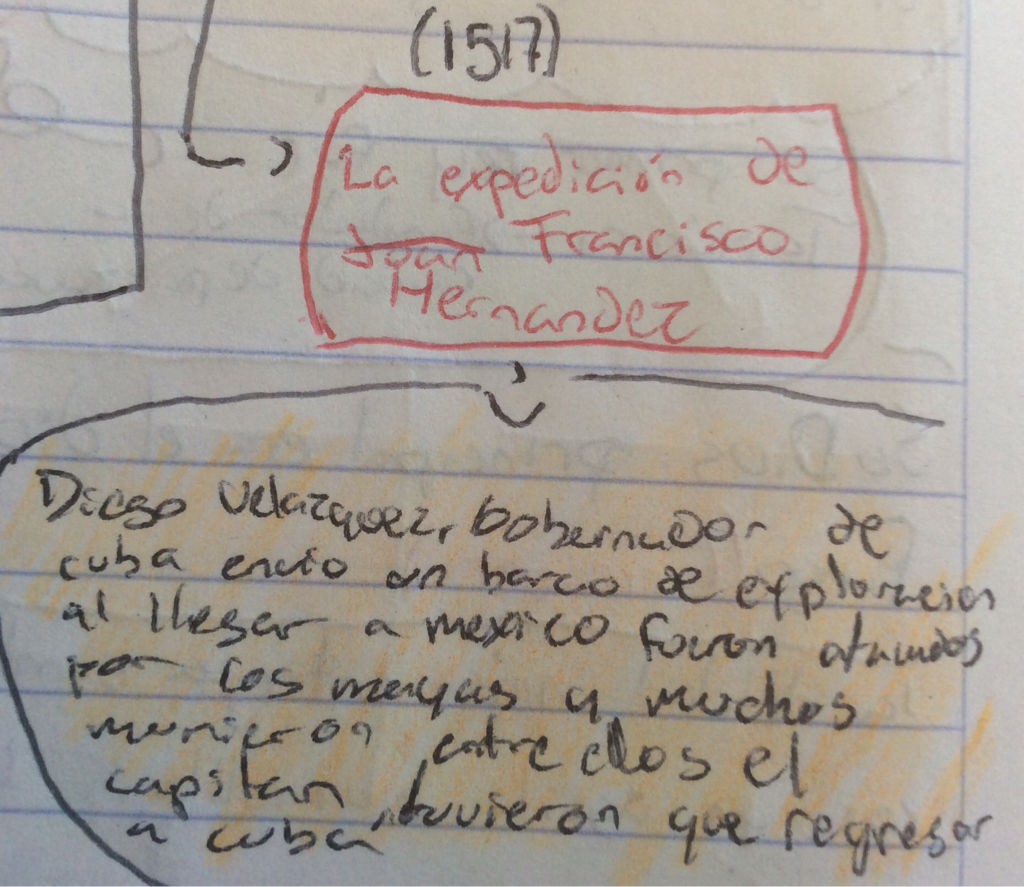 (1517)
La expedición de
Juan Francisco
Hernandez
Diego Velazquez, Gobernador de
cuba envio un barco de exploracion
al llegar a mexico fueron atacados
por los mayas y muchos
murieron entre ellos el
capitan, tuvieron que regresar
a cuba